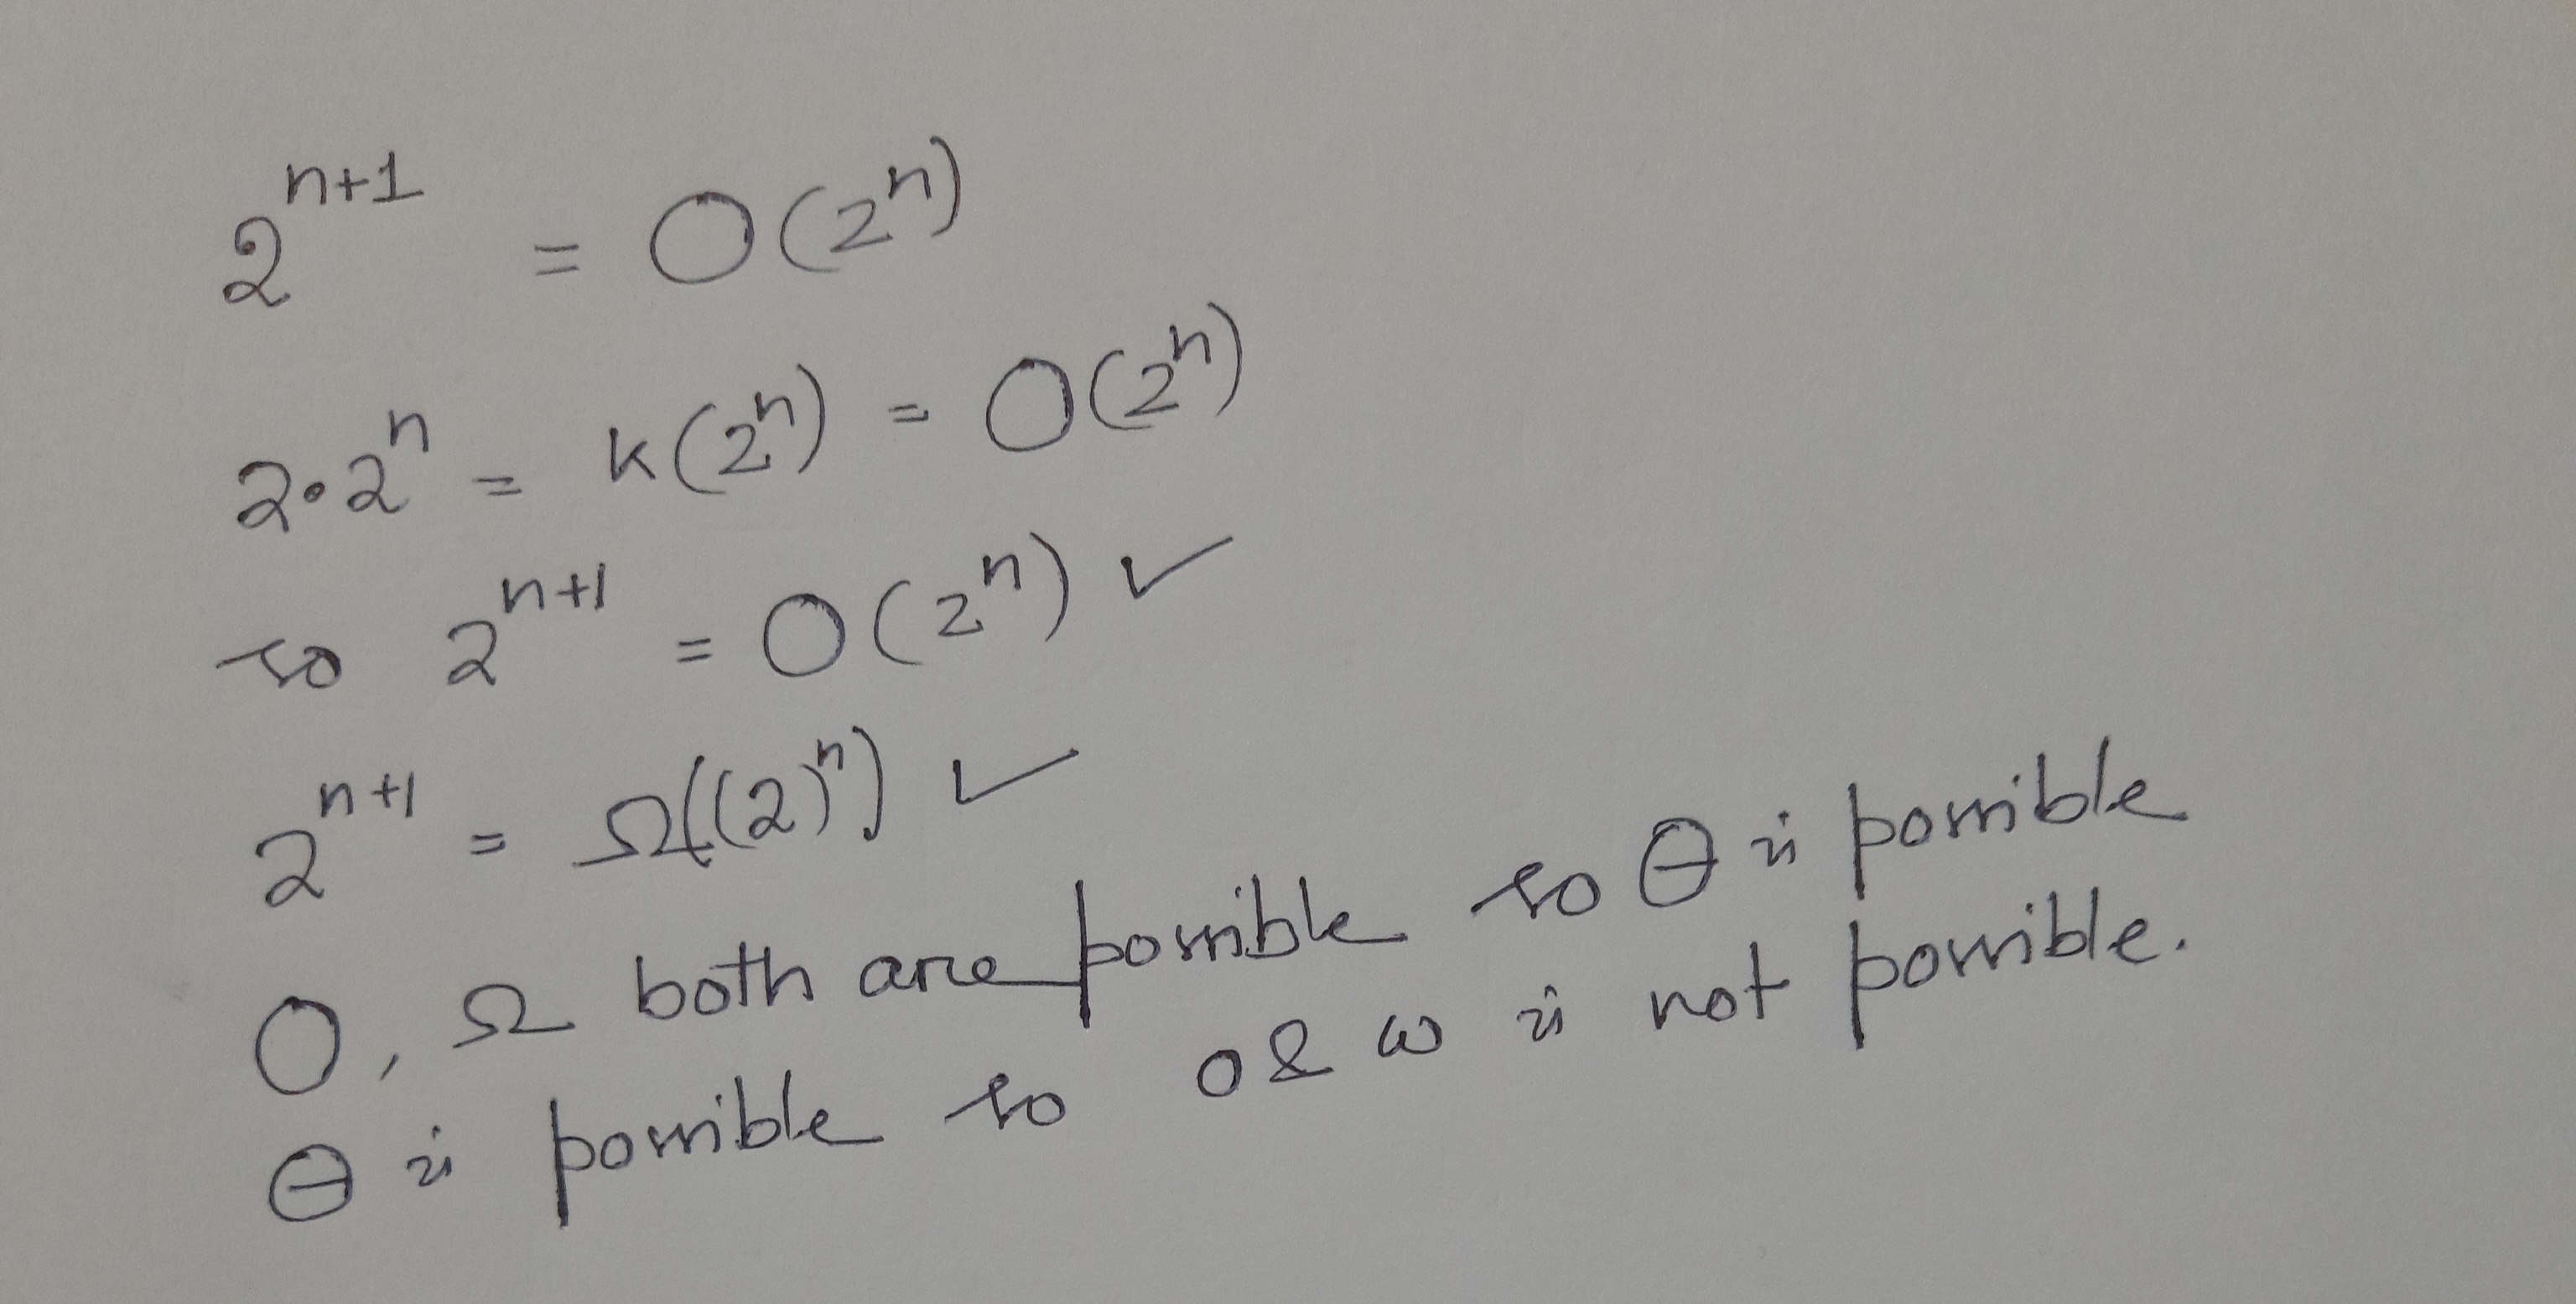 2^{n+1} = O(2^n)
2·2^n = k(2^n) = O(2^n)
so 2^{n+1} = O(2^n) ✓
2^{n+1} = Ω((2)^n) ✓
O, Ω both are possible so Θ is possible
Θ is possible so o & ω is not possible.